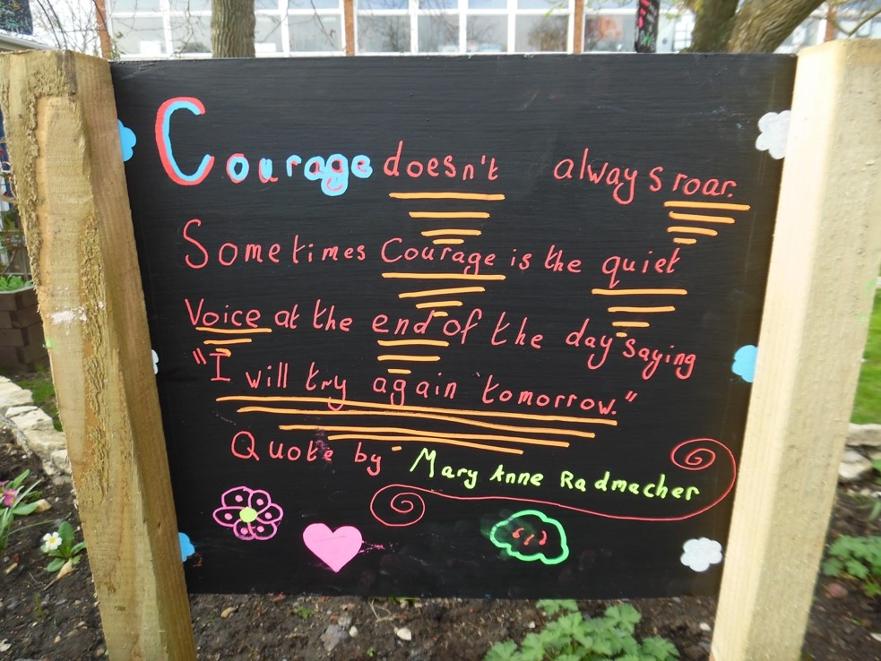 Courage doesn't always roar.
Sometimes Courage is the quiet
Voice at the end of the day saying
"I will try again tomorrow."
Quote by - Mary Anne Radmacher